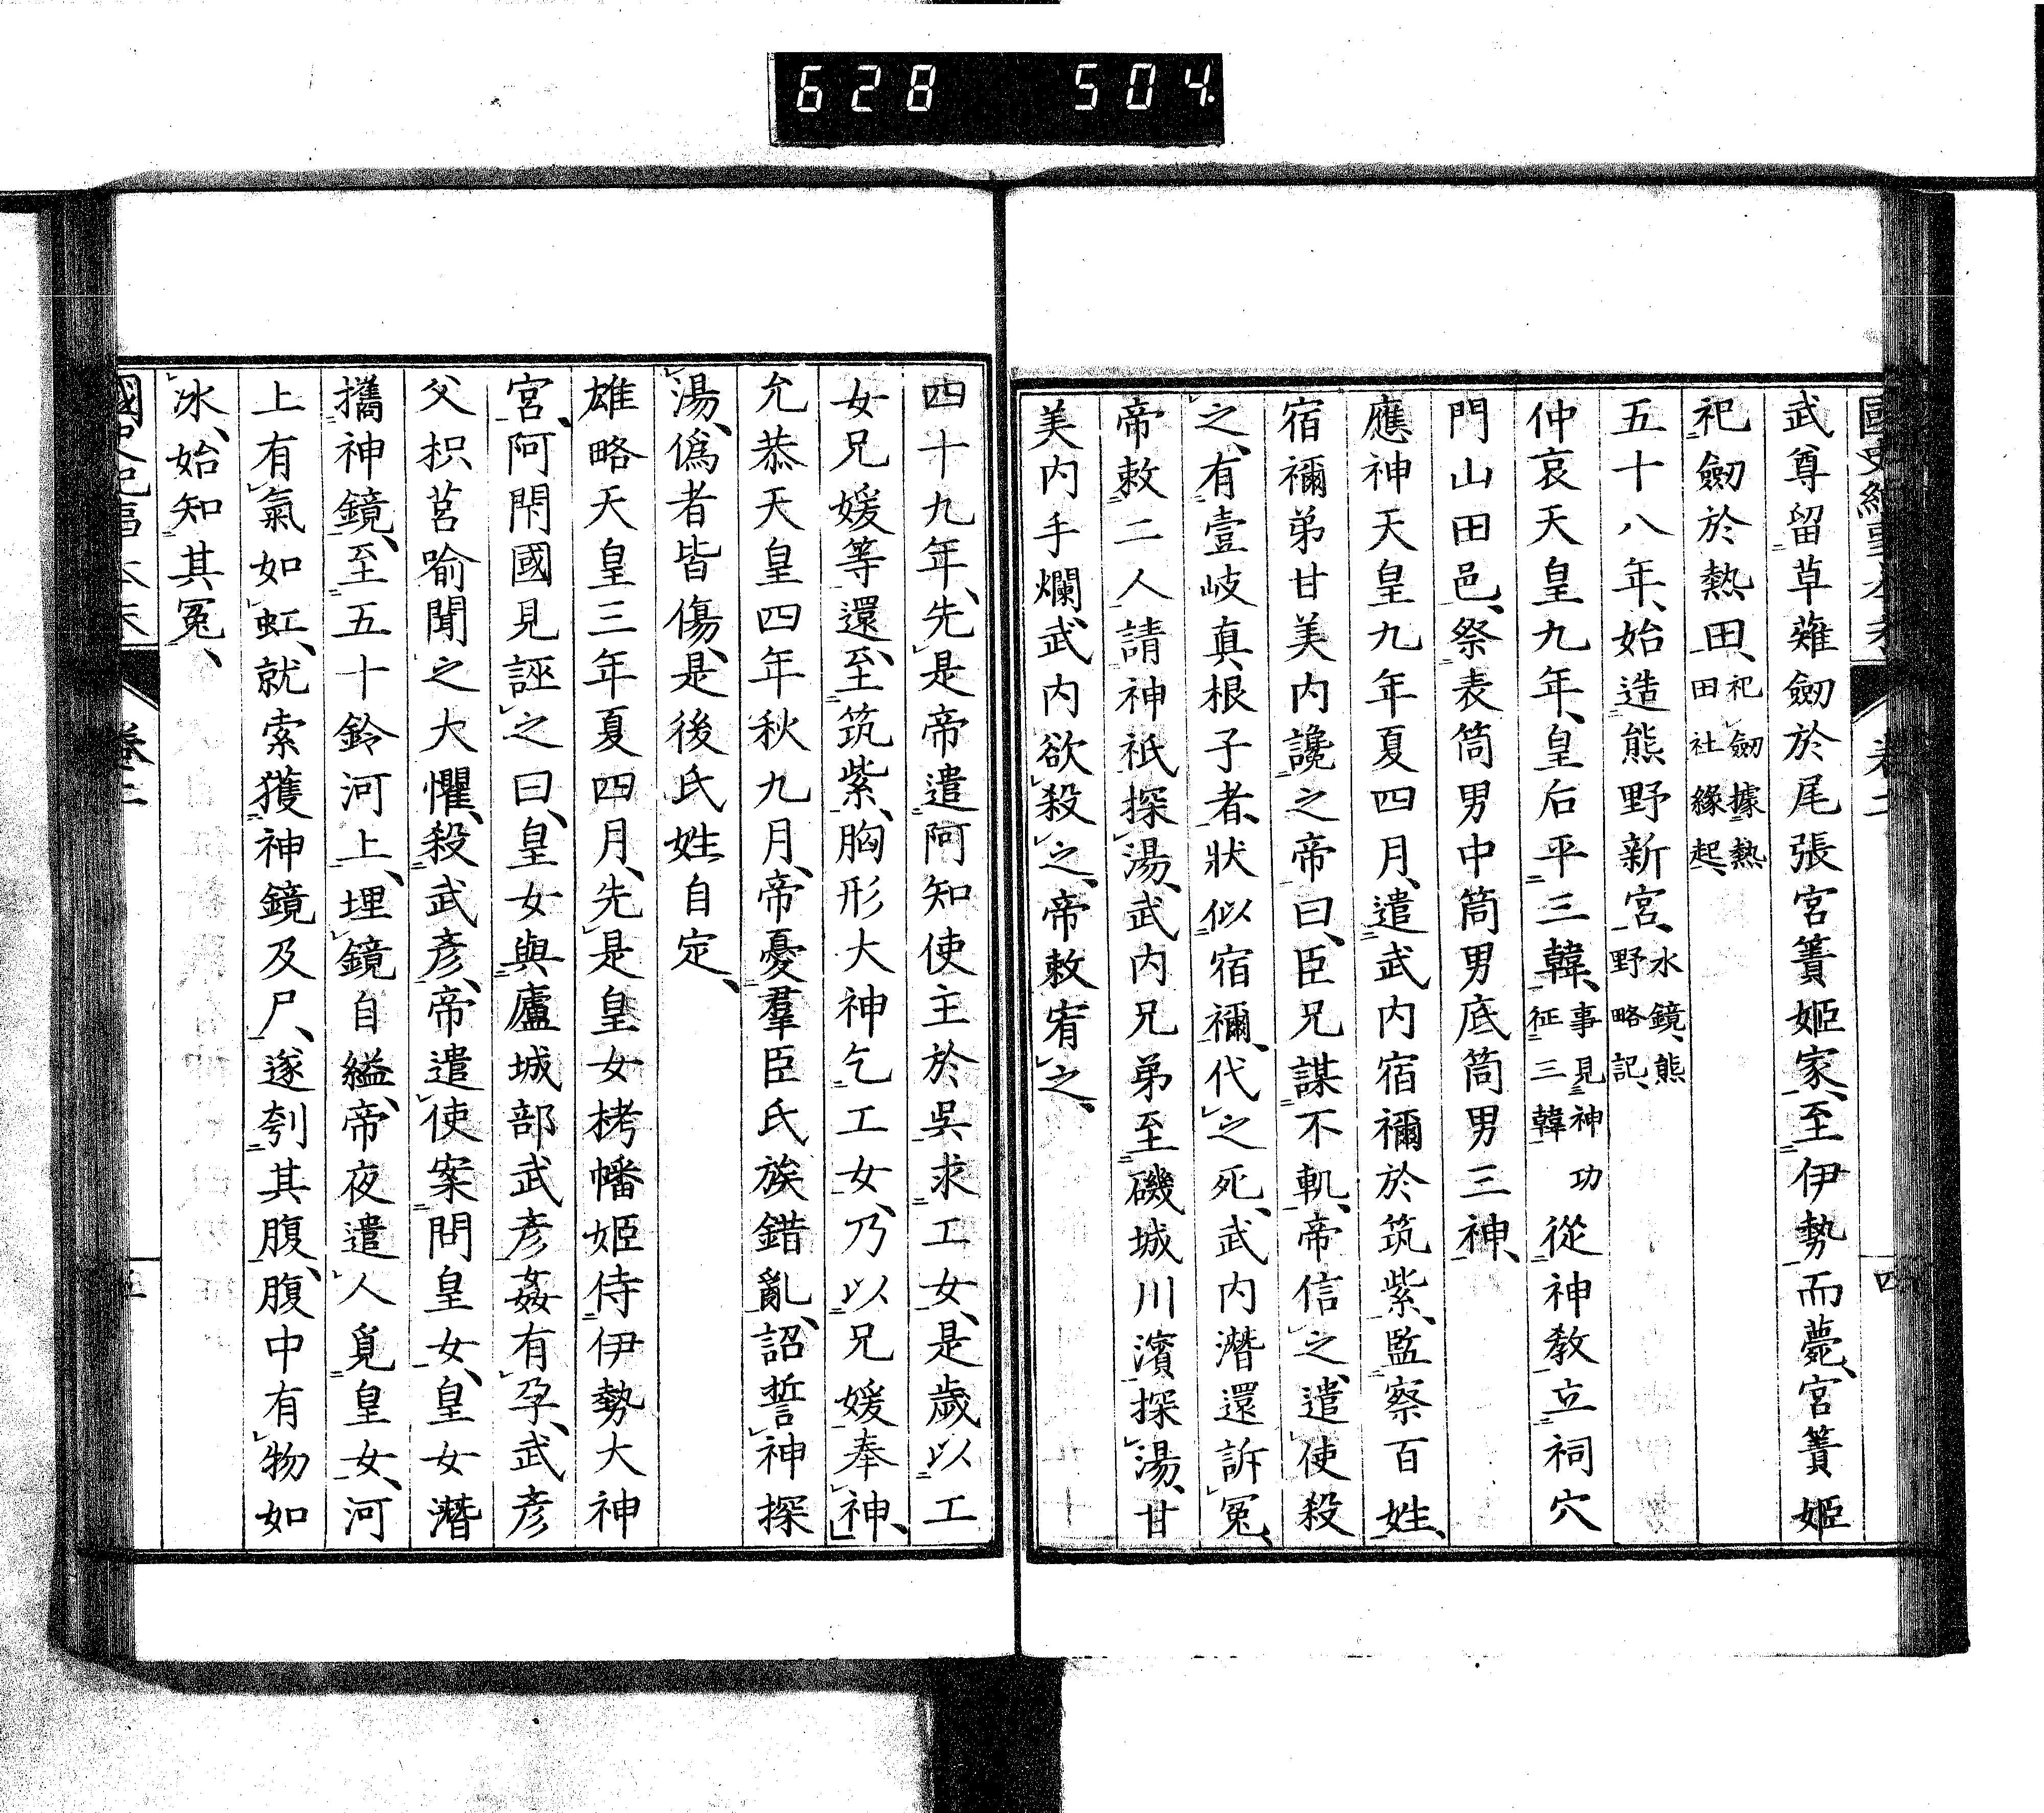 628 504.
武尊留草薙劒於尾張宮簀姬家、至伊勢而薨、宮簀姬
祀劒於熱田、祀劒據熱田社緣起、
五十八年、始造熊野新宮、水鏡、熊野略記、
仲哀天皇九年、皇后平三韓、事見神功征三韓從神敎立祠穴
門山田邑、祭表筒男中筒男底筒男三神、
應神天皇九年夏四月、遣武內宿禰於筑紫、監察百姓、
宿禰弟甘美內讒之帝曰、臣兄謀不軌、帝信之、遣使殺
之、有壹岐真根子者、狀似宿禰、代之死、武內潛還訴冤、
帝敕二人請神祇探湯、武內兄弟至磯城川濱探湯、甘
美內手爛、武內欲殺之、帝敕宥之、
四十九年、先是帝遣阿知使主於吳求工女、是歲以工
女兄媛等還、至筑紫、胸形大神乞工女、乃以兄媛奉神、
允恭天皇四年秋九月、帝憂羣臣氏族錯亂、詔誓神探
湯、僞者皆傷、是後氏姓自定、
雄略天皇三年夏四月、先是皇女栲幡姬侍伊勢大神
宮、阿閇國見誣之曰、皇女與廬城部武彥姦有孕、武彥
父枳莒喻聞之大懼、殺武彥、帝遣使案問皇女、皇女潛
攜神鏡、至五十鈴河上、埋鏡自縊、帝夜遣人覓皇女、河
上有氣如虹、就索獲神鏡及尸、遂刳其腹、腹中有物如
冰、始知其冤、